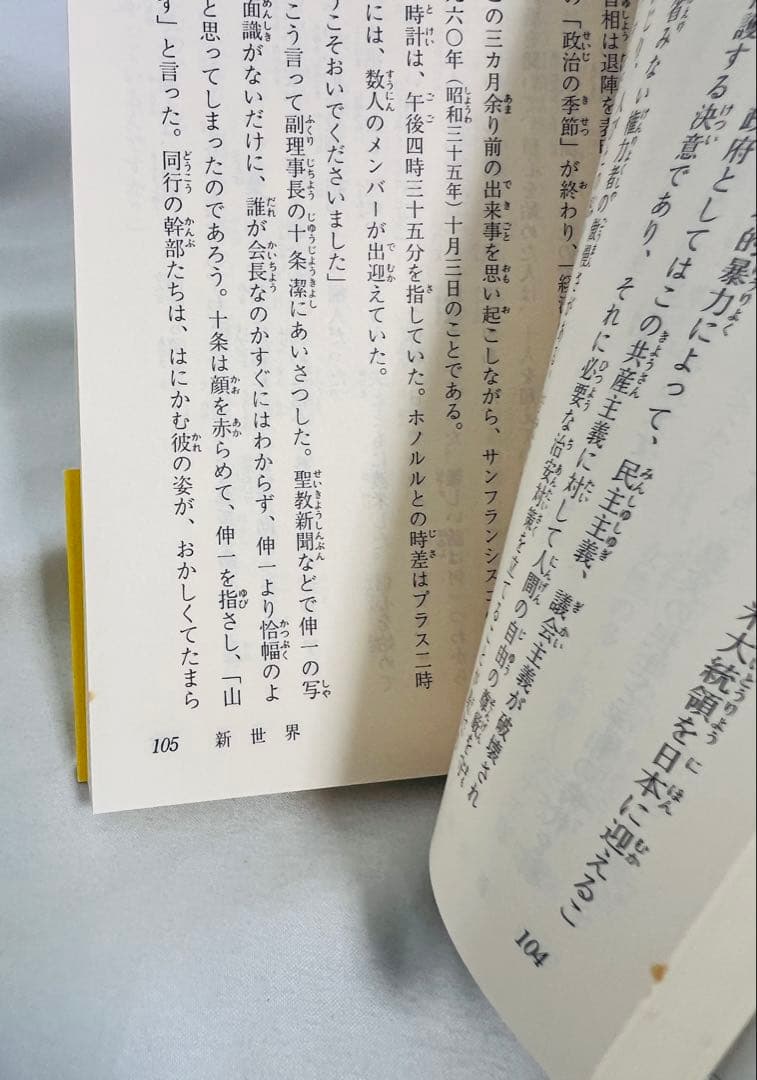 米大統領を日本に迎えるこ
的暴力によって、民主主義、議会主義が破壊され
政府としてはこの共産主義に対して人間の自由の
護する決意であり、それに必要な治安対策を立てること
104
首相は退陣を表
の「政治の季節」が終わり、「経済
の三カ月余り前の出来事を思い起こしながら、サンフランシスコ
六〇年（昭和三十五年）十月三日のことである。
時計は、午後四時三十五分を指していた。ホノルルとの時差はプラス二時
には、数人のメンバーが出迎えていた。
うこそおいでくださいました」
こう言って副理事長の十条潔にあいさつした。聖教新聞などで伸一の写
面識がないだけに、誰が会長なのかすぐにはわからず、伸一より恰幅のよ
と思ってしまったのであろう。十条は顔を赤らめて、伸一を指さし、「山
す」と言った。同行の幹部たちは、はにかむ彼の姿が、おかしくてたまら
105 新世界